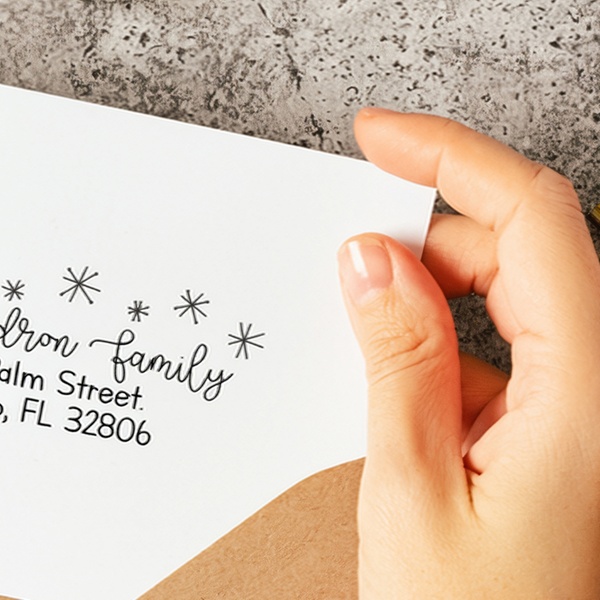 dron family
alm Street.
o, FL 32806